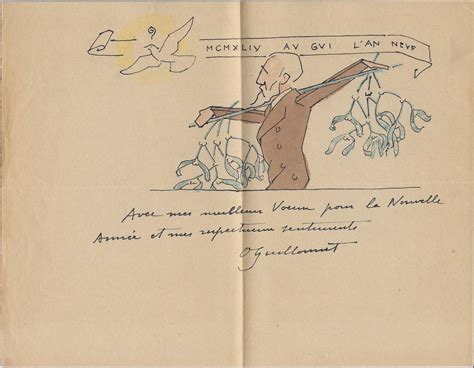 MCMXLIV AU GUI L'AN NEUF
Avec mes meilleurs Voeux pour la Nouvelle
Année et mes respectueux sentiments
O Guillonnet